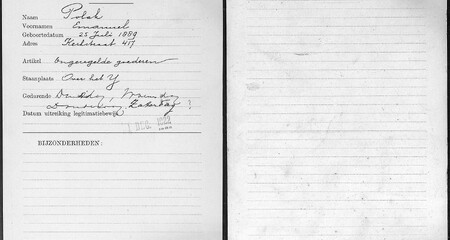 Naam Polak
Voornamen Emanuel
Geboortedatum 25 Juli 1889
Adres Kerkstraat 417
Artikel Ongeregelde goederen
Staanplaats Over het Y
Gedurende Dinsdag, Woensdag
Donderdag, Zaterdag
Datum uitreiking legitimatiebewijs
DEC.
BIJZONDERHEDEN: